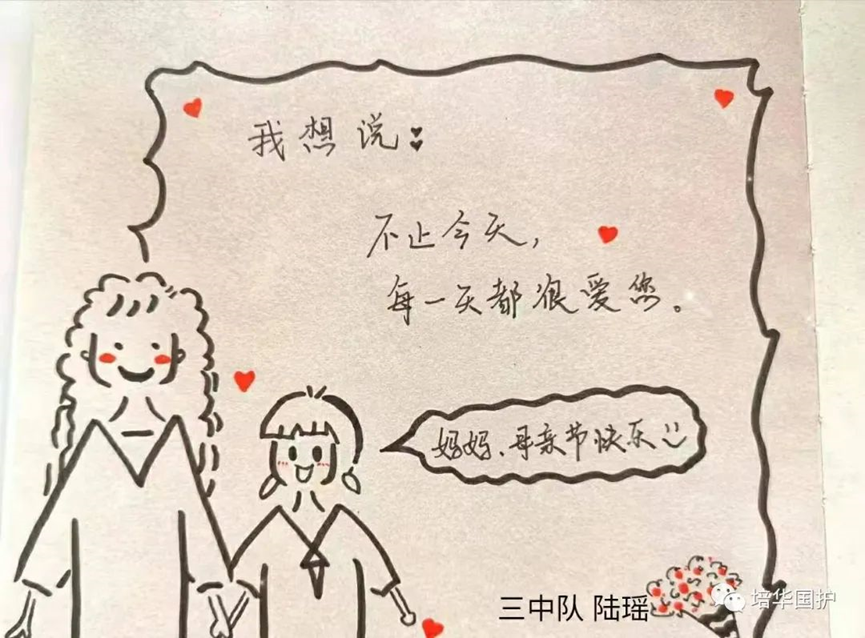 我想说:
不止今天,
每一天都很爱您。
妈妈、母亲节快乐
三中队 陆瑶
培华国护